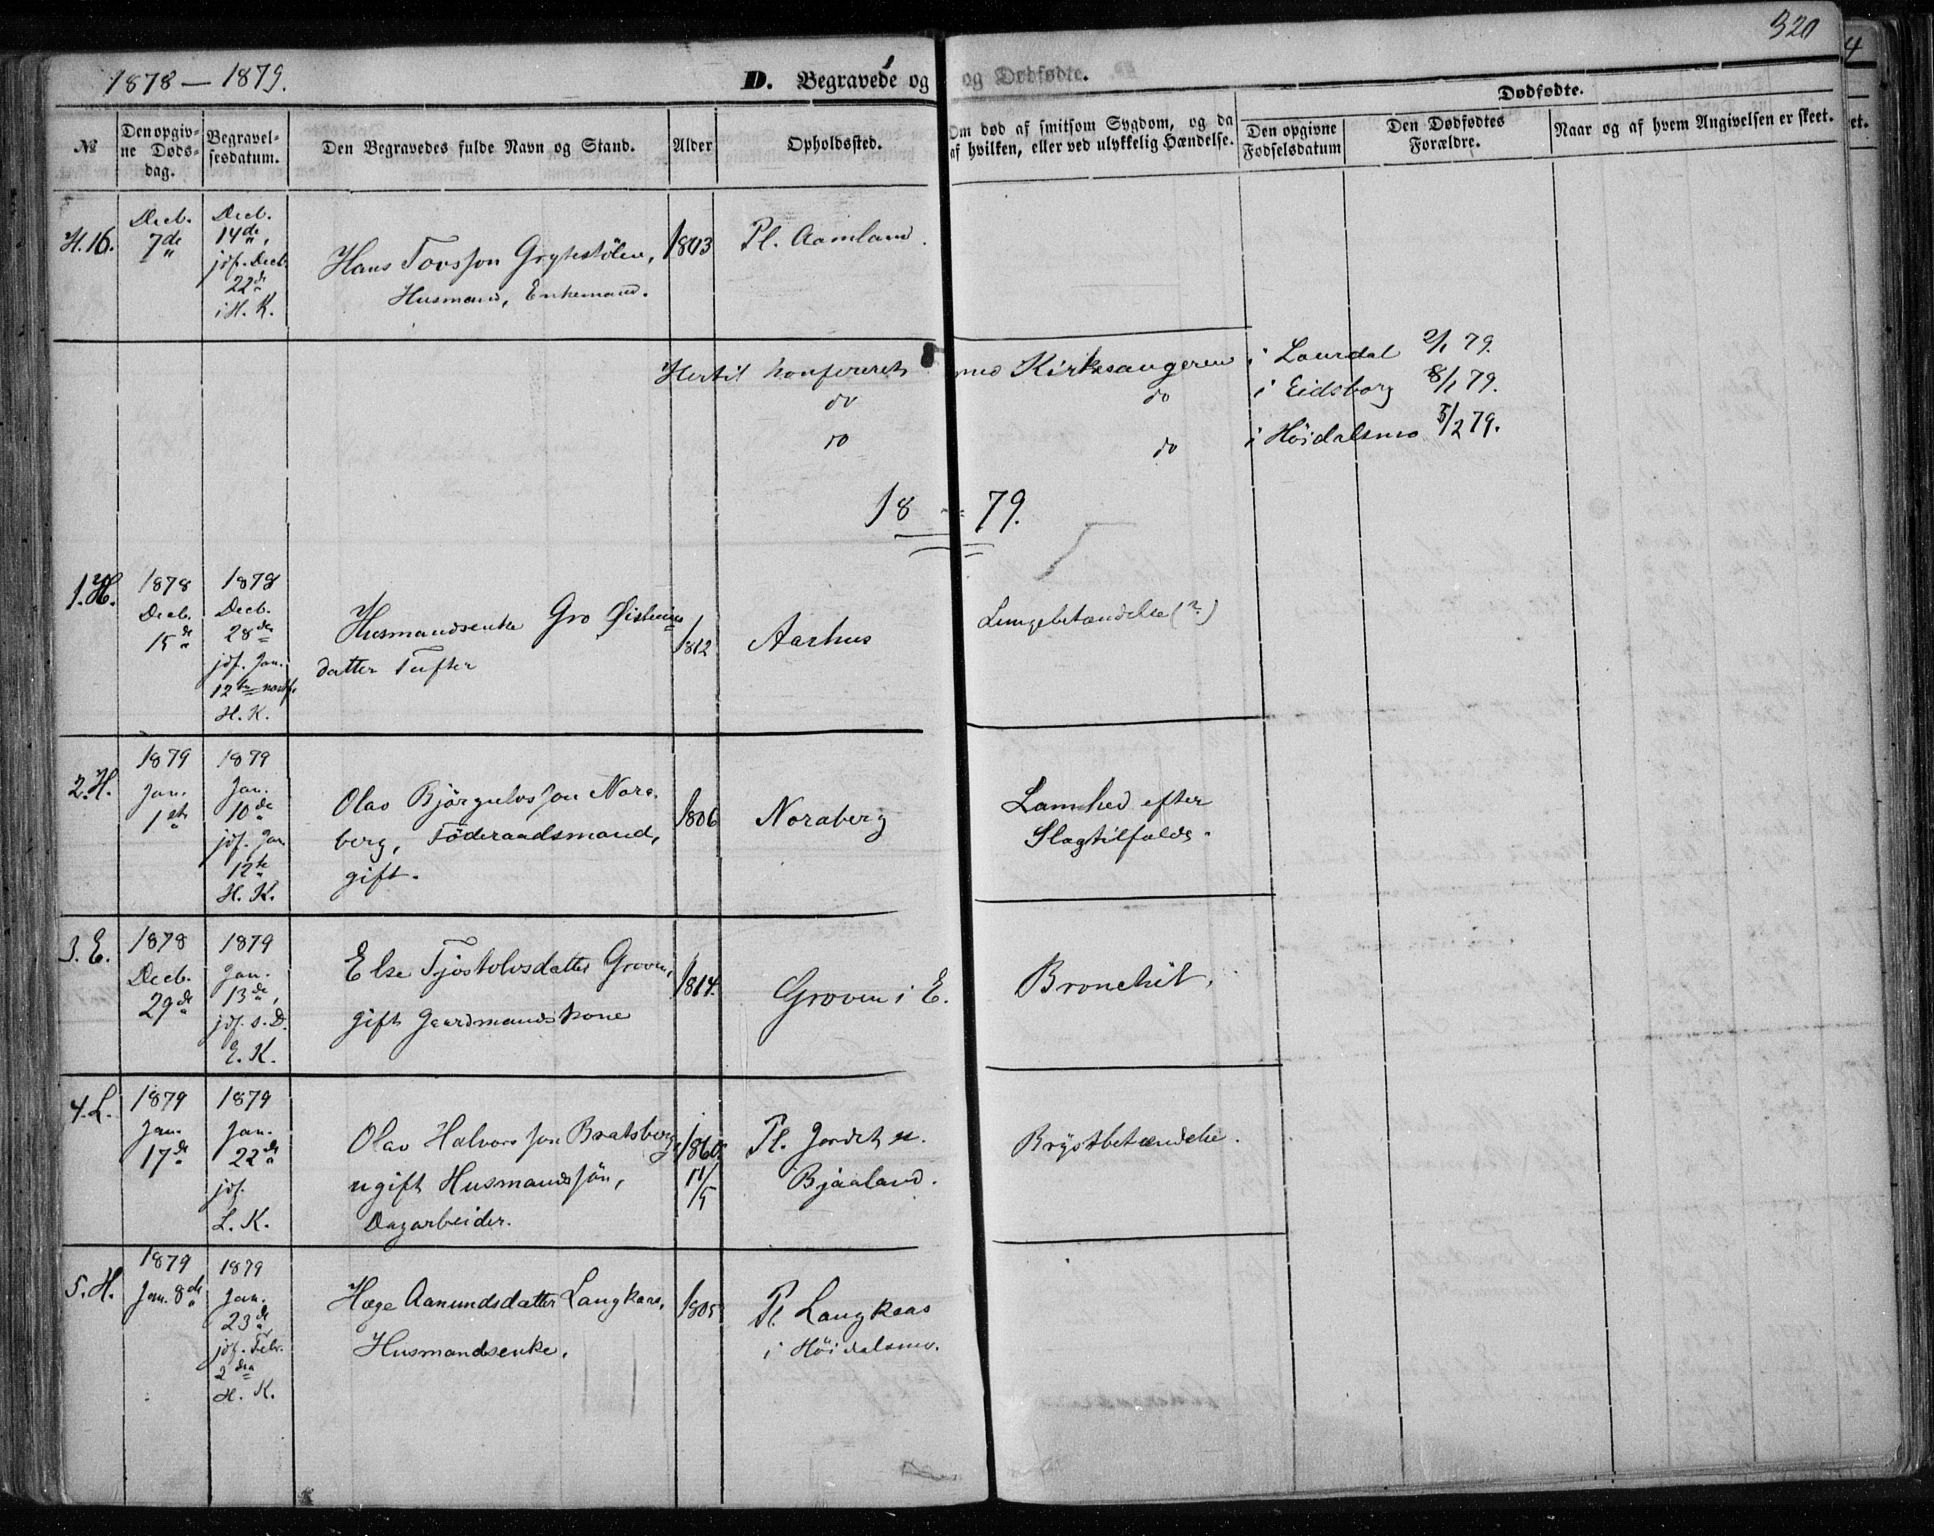 1878 — 1879.
D. Begravede og
og Dødfødte.
320
4
№
Den opgiv-
ne Døds-
dag.
Begravel-
sesdatum.
Den Begravedes fulde Navn og Stand.
Alder
Opholdssted.
Om død af smitsom Sygdom, og da
af hvilken, eller ved ulykkelig Hændelse.
Dødfødte.
Den opgivne
Fødselsdatum
Den Dødfødtes
Forældre.
Naar og af hvem Angivelsen er skeet.
et.
H. 16.
Decb.
7de
Decb.
14de,
jdf. Decb.
22de
i H. K.
Hans Tovsson Grytestölen,
Husmand, Enkemand.
1803
Pl. Aamland.
Hertil konfereret med Kirkesangeren i Laurdal 2/1 79.
do do i Eidsborg 8/1 79.
do do i Höidalsmo 5/2 79.
18 — 79.
1. H.
1878
Decb.
15de
1878
Decb.
28de
jdf. Jan.
12te
H. K.
Husmandsenke Gro Øisteins
datter Tufter
1812
Aarhus
Lungebetændelse (?)
2. H.
1879
Jan.
1ste
1879
Jan.
10de
jdf. Jan.
12te
H. K.
Olav Bjørgulvsson Nora-
berg, Föderaadsmand,
gift.
1806
Noraberg
Lamhed efter
Slagtilfælde.
3. E.
1878
Decb.
29de
1879
Jan.
13de,
jdf. s. D.
E. K.
Else Tjøstolvsdatter Groven,
gift Gaardmandskone
1814.
Groven i E.
Bronchit.
4. L.
1879
Jan.
17de
1879
Jan.
22de
jdf.
L. K.
Olav Halvorsson Bratsberg,
ugift Husmandssön,
Dagarbeider.
1860
11/5
Pl. Jordet u.
Bjaaland.
Brystbetændelse.
5. H.
1879
Jan. 8de
1879
Jan.
23de
jdf. Febr.
2den
H. K.
Hæge Aanundsdatter Langkaas,
Husmandsenke.
1805
Pl. Langkaas
i Höidalsmo.